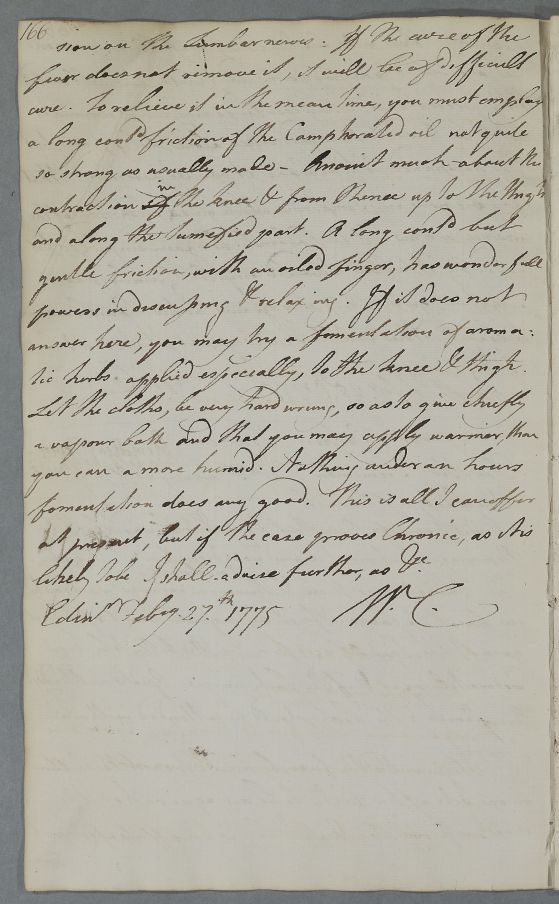 166
sion on the Lumbar nerves. If the cure of the
fever does not remove it, it will be of difficult
cure. To relieve it in the mean time, you must employ
a long contd friction of the Camphorated oil not quite
so strong as usually made - Anoint much about the
contraction in the knee & from thence up to the thigh
and along the tumefied part. A long contd but
gentle friction, with an oiled finger, has wonderfull
powers in discussing & relaxing. If it does not
answer here, you may try a fomentation of aroma:
tic herbs applied especially, to the knee & thigh.
Let the cloths, be very hard wrung, so as to give chiefly
a vapour bath and that you may apply warmer, than
you can a more humid. Nothing under an hours
fomentation does any good. This is all I can offer
at present, but if the case proves Chronic, as it is
likely to be I shall advise further, as &c
Edinr Feby. 27.th 1775 Wm. C.